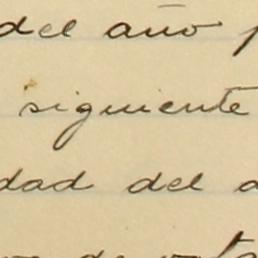 del año
siguiente
dad del
de